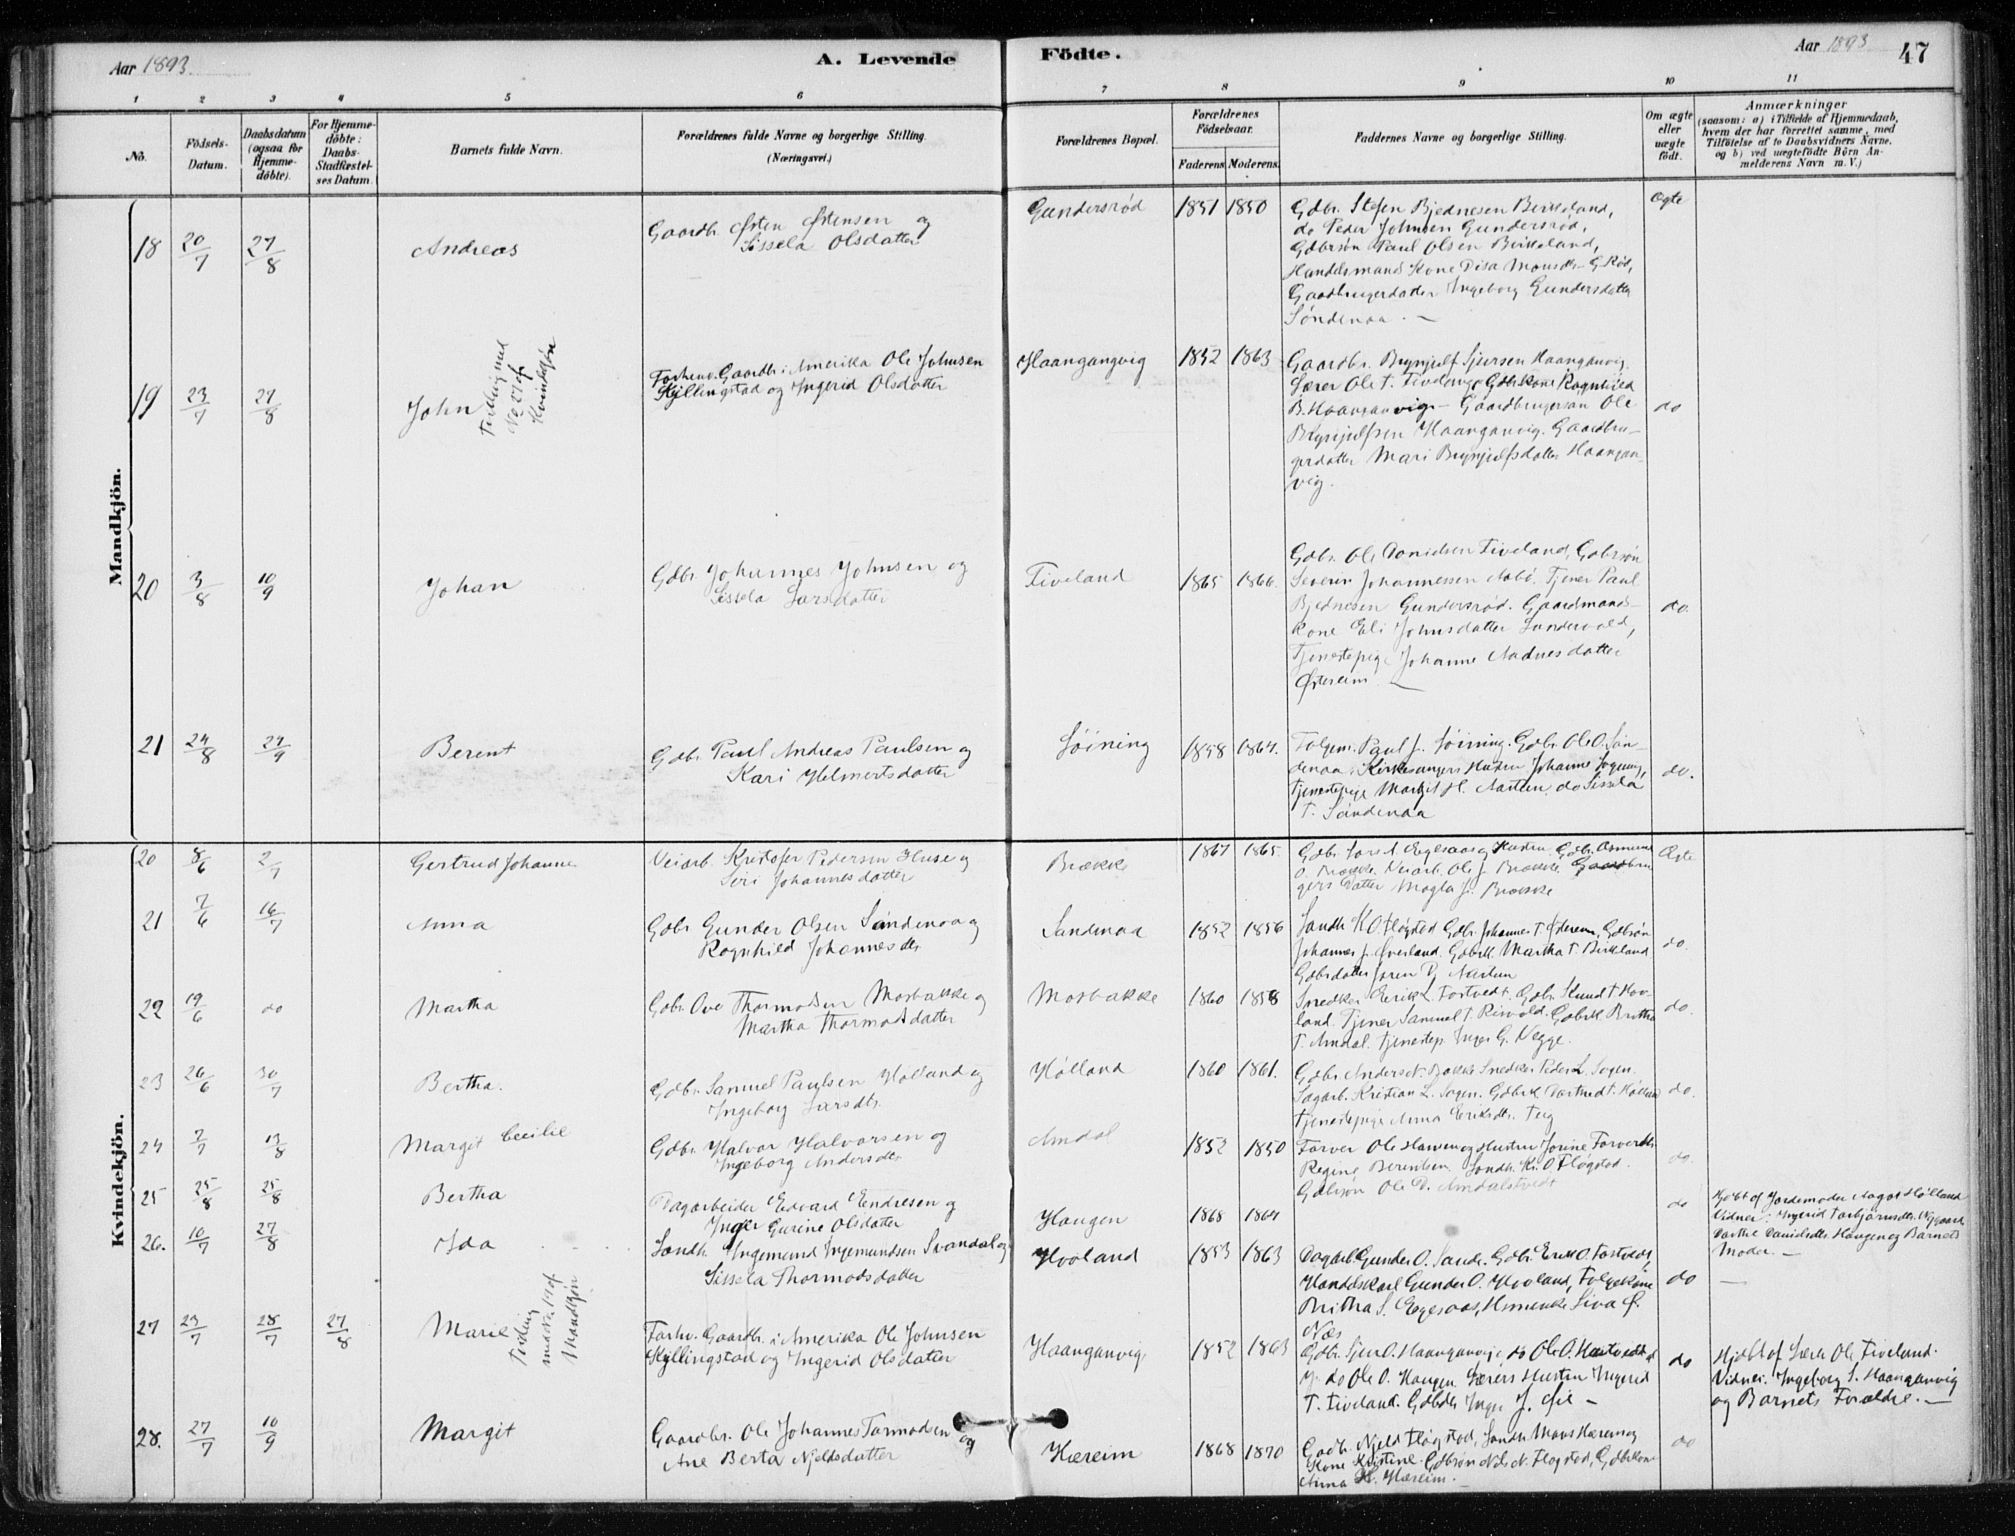 Aar 1893.
A. Levende
Födte.
Aar 1893
47
1 2 3 4 5 6 7 8 9 10 11
No.
Födsels-
Datum.
Daabsdatum
(ogsaa for
Hjemme-
döbte).
For Hjemme-
döbte:
Daabs-
Stadfæstel-
ses Datum.
Barnets fulde Navn.
Forældrenes fulde Navne og borgerlige Stilling.
(Næringsvei.)
Forældrenes Bopæl.
Forældrenes
Födselsaar.
Faderens Moderens.
Faddernes Navne og borgerlige Stilling.
Om ægte
eller
uægte
födt.
Anmærkninger
(saasom: a) i Tilfælde af Hjemmedaab,
hvem der har forrettet samme, med
Tilföielse af to Daabsvidners Navne,
og b) ved uægtefödte Börn An-
melderens Navn m. V.)
Mandkjön.
18 20/7 27/8 Andreas
Gaardbr. Østen Østensen og
Sissela Olsdatter
Gundersrød 1851 1850
Gdbr. Stefen Bjednesen Birkeland,
do Peder Johnsen Gundersrød,
Gdbrsøn Paul Olsen Birkeland,
Handelsmands Kone Disa Monsdtr. G.Rød,
Gaardbrugerdatter Ingeborg Gundersdatter
Søndenaa. —
Ægte
19 23/7 27/8 John
Tvilling med
No 27 af
Kvindekjøn
Forhenv. Gaardbr. i Amerika Ole Johnsen
Kyllingstad og Ingerid Olsdatter
Haangangvig 1852 1863
Gaardbr. Brynjulf Sjursen Haanganvig.
Lærer Ole T. Tiveland, Gdbrkone Ragnhild
B. Haanganvig — Gaardbrugersøn Ole
Brynjulfsen Haanganvig. Gaardbru-
gerdatter Mari Brynjulfsdatter Haangan-
vig.
do
20 3/8 10/9 Johan
Gdbr. Johannes Johnsen og
Sissela Larsdatter
Tiveland 1865 1866.
Gdbr. Ole Danielsen Tiveland, Gdbrsøn
Severin Johannessen Aabø. Tjener Paul
Bjednesen Gundersrød. Gaardmands-
kone Eli Johnsdatter Sundevold,
Tjenestepige Johanne Aadnesdatter
Østereim. —
do.
21 24/8 24/9 Berent
Gdbr. Paul Andreas Paulsen og
Kari Helmertsdatter
Söining 1858 1864.
Folgem. Paul J. Söining. Gdbr. Ole O. Søn-
denaa, Kirkesangers Hustru Johanne
Tjenestepige Margit H. Aarteen. do Sissela
T. Søndenaa
do.
Kvindekjön.
20 8/6 2/7 Gertrud Johanne
Veiarb. Kristofer Pedersen Huse og
Siri Johannesdatter
Brække 1867 1865.
Gdbr. Egesaas og Hustru. Gdbr. Osmund
O. Brække. Veiarb. Ole J. Brække. Gaardbru
gers Datter Magla J. Brække
Ægte
21 7/6 16/7 Anna
Gdbr. Gunder Olsen Søndenaa og
Ragnhild Johannesdtr
Søndenaa 1852 1856
Landh. K. O. Fløgstad Gdbr. Johannes T. Østereim, Gdbrsøn
Johannes J. Överland. Gdbrk. Martha T. Birkland
Gdbrdatter Søren Aarteen
do.
22 19/6 do Martha
Gdbr. Ove Thormodsen Mosbakke og
Martha Thormodsdatter
Mosbakke 1860 1858
Snedker Eerik L. Tostvedt. Gdbr. Knud T. Hov-
land. Tjener Samuel T. Risvold. Gdbrk. Britha
T. Amdal. Tjenestep. Inger G. Vegge.
do.
23 26/6 30/7 Bertha.
Gdbr. Samuel Paulsen Hølland og
Ingeborg Larsdtr.
Hølland 1860 1861.
Gdbr. Anders N. Bakke Snedker Peder L. Sogen.
Sagarb. Kristian L. Sogen. Gdbrk. Dorthe T. Hølland
Tjenestepige Anna Eriksdtr. Teig
do.
24 7/7 13/8 Margit Cecilie
Gdbr. Halvor Halvorsen og
Ingeborg Andersdtr
Amdal 1853 1850
Farver Ole Hansen og Hustru Jorine Farverdtr.
Regine Berentsen. Landh. K. O. Fløgstad.
Gdbrsøn Ole D. Amdalstvedt
do.
25 25/8 25/8 Bertha
Dagarbeider Edvard Endresen og
Inger Gurine Olsdatter
Haugen 1868 1864
do
Hjdbt af Jordemoder Aagot Hølland
Vidner: Ingerid Torbjørnsdtr. Nygaard
Dorthe Danielsdtr. Haugen og Barnets
Moder. —
26. 10/7 27/8 Ida
Landh. Ingemund Ingemundsen Svandal og
Sissela Thormodsdatter
Hvoland 1853 1863
Dagarb. Gunder O. Sande. Gdbr. Erik O. Tostvedt,
Handelskarl Gunder O. Hvoland, Folgekone
Britha S. Egesaas, Siva Ø.
Næs
do —
27 23/7 28/7 27/8 Marie
Tvilling
med No. 19 af
Mandkjön
Forhv. Gaardbr. i Amerika Ole Johnsen
Kyllingstad og Ingerid Olsdatter
Haanganvig 1852 1863
Gdbr. Sjur O. Haanganvig, do Ole O. Hustvedt
do Ole O. Haugen Lærers Hustru Ingerid
T. Tiveland. Gdbrdtr. Inger J. Öie —
do
Hjdbt af Lærer Ole Tiveland.
Vidner: Ingeborg S. Haanganvig
og Barnets Forældre. —
28. 27/7 10/9 Margit
Gaardbr. Ole Johannes Tormodsen og
Ane Berta Njeldsdatter
Hæreim 1868 1870
Gaardbr. Njeld Fløgstad, Landh. Mons Hæreim og
Kone Kristine. Gdbrsøn Nils N. Fløgstad, Gdbrkone
Anna H. Hæreim. —
do